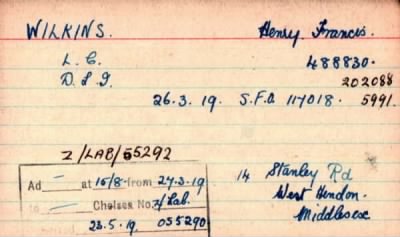 WILKINS. Henry Francis.
L. C. 488830.
D. L. I. 202088
26.3.19. S.F.O. 117018. 5991.
Z/LAB/55292
Ad — at 15/8 from 27.3.19
to — Chelsea No. Z/Lab.
23.5.19 055290
14 Stanley Rd
West Hendon.
Middlesex